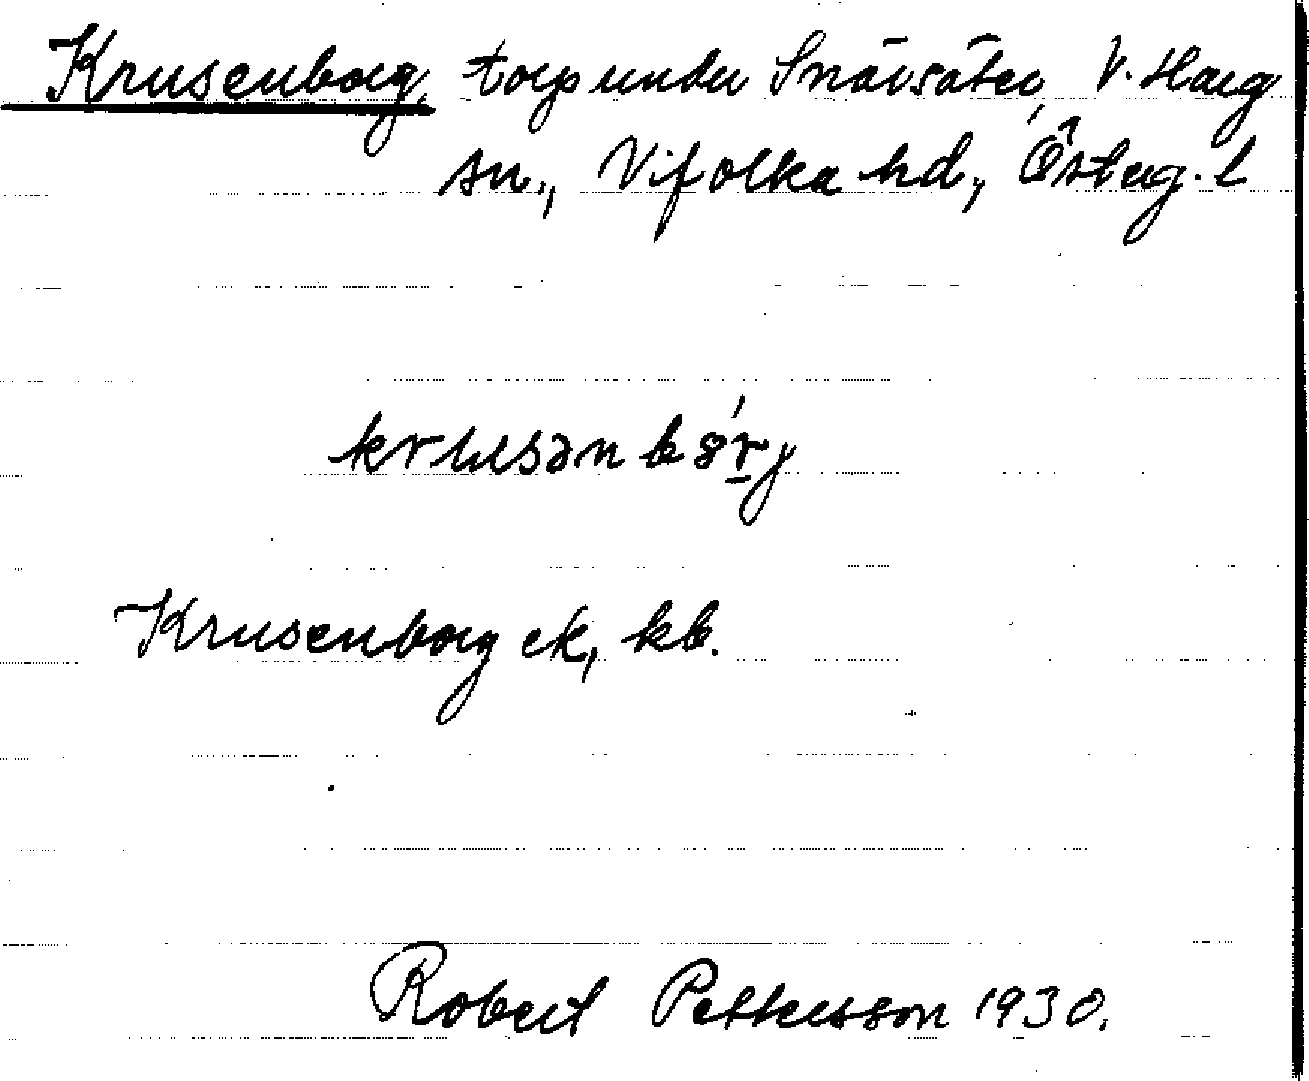 Krusenborg, torp under Snävsäter, V. Harg
sn., Vifolka hd, Österg. l
krusənbȣr̲j
Krusenborg ek, kb.
Robert Pettersson 1930.